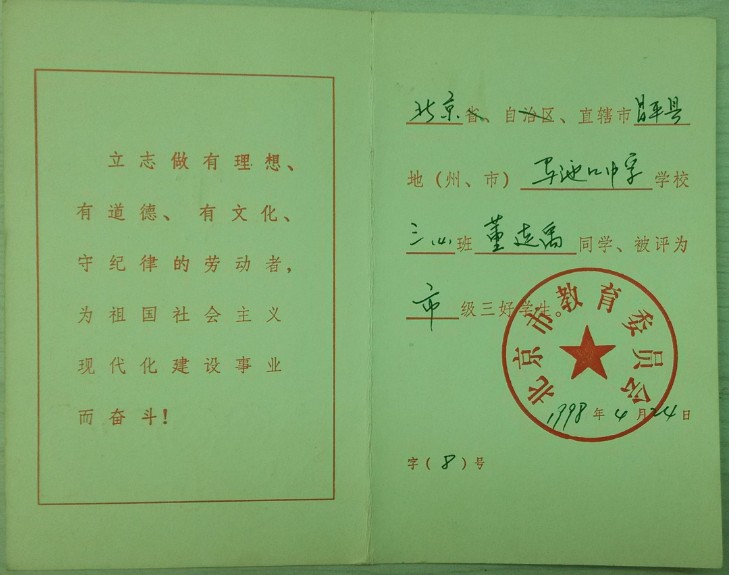 立志做有理想、
有道德、有文化、
守纪律的劳动者，
为祖国社会主义
现代化建设事业
而奋斗！
北京省、自治区、直辖市昌平县
地（州、市）马池口中学学校
三（4）班董连禹同学、被评为
市级三好学生。
北京市教育委员会
1998年4月24日
字（8）号